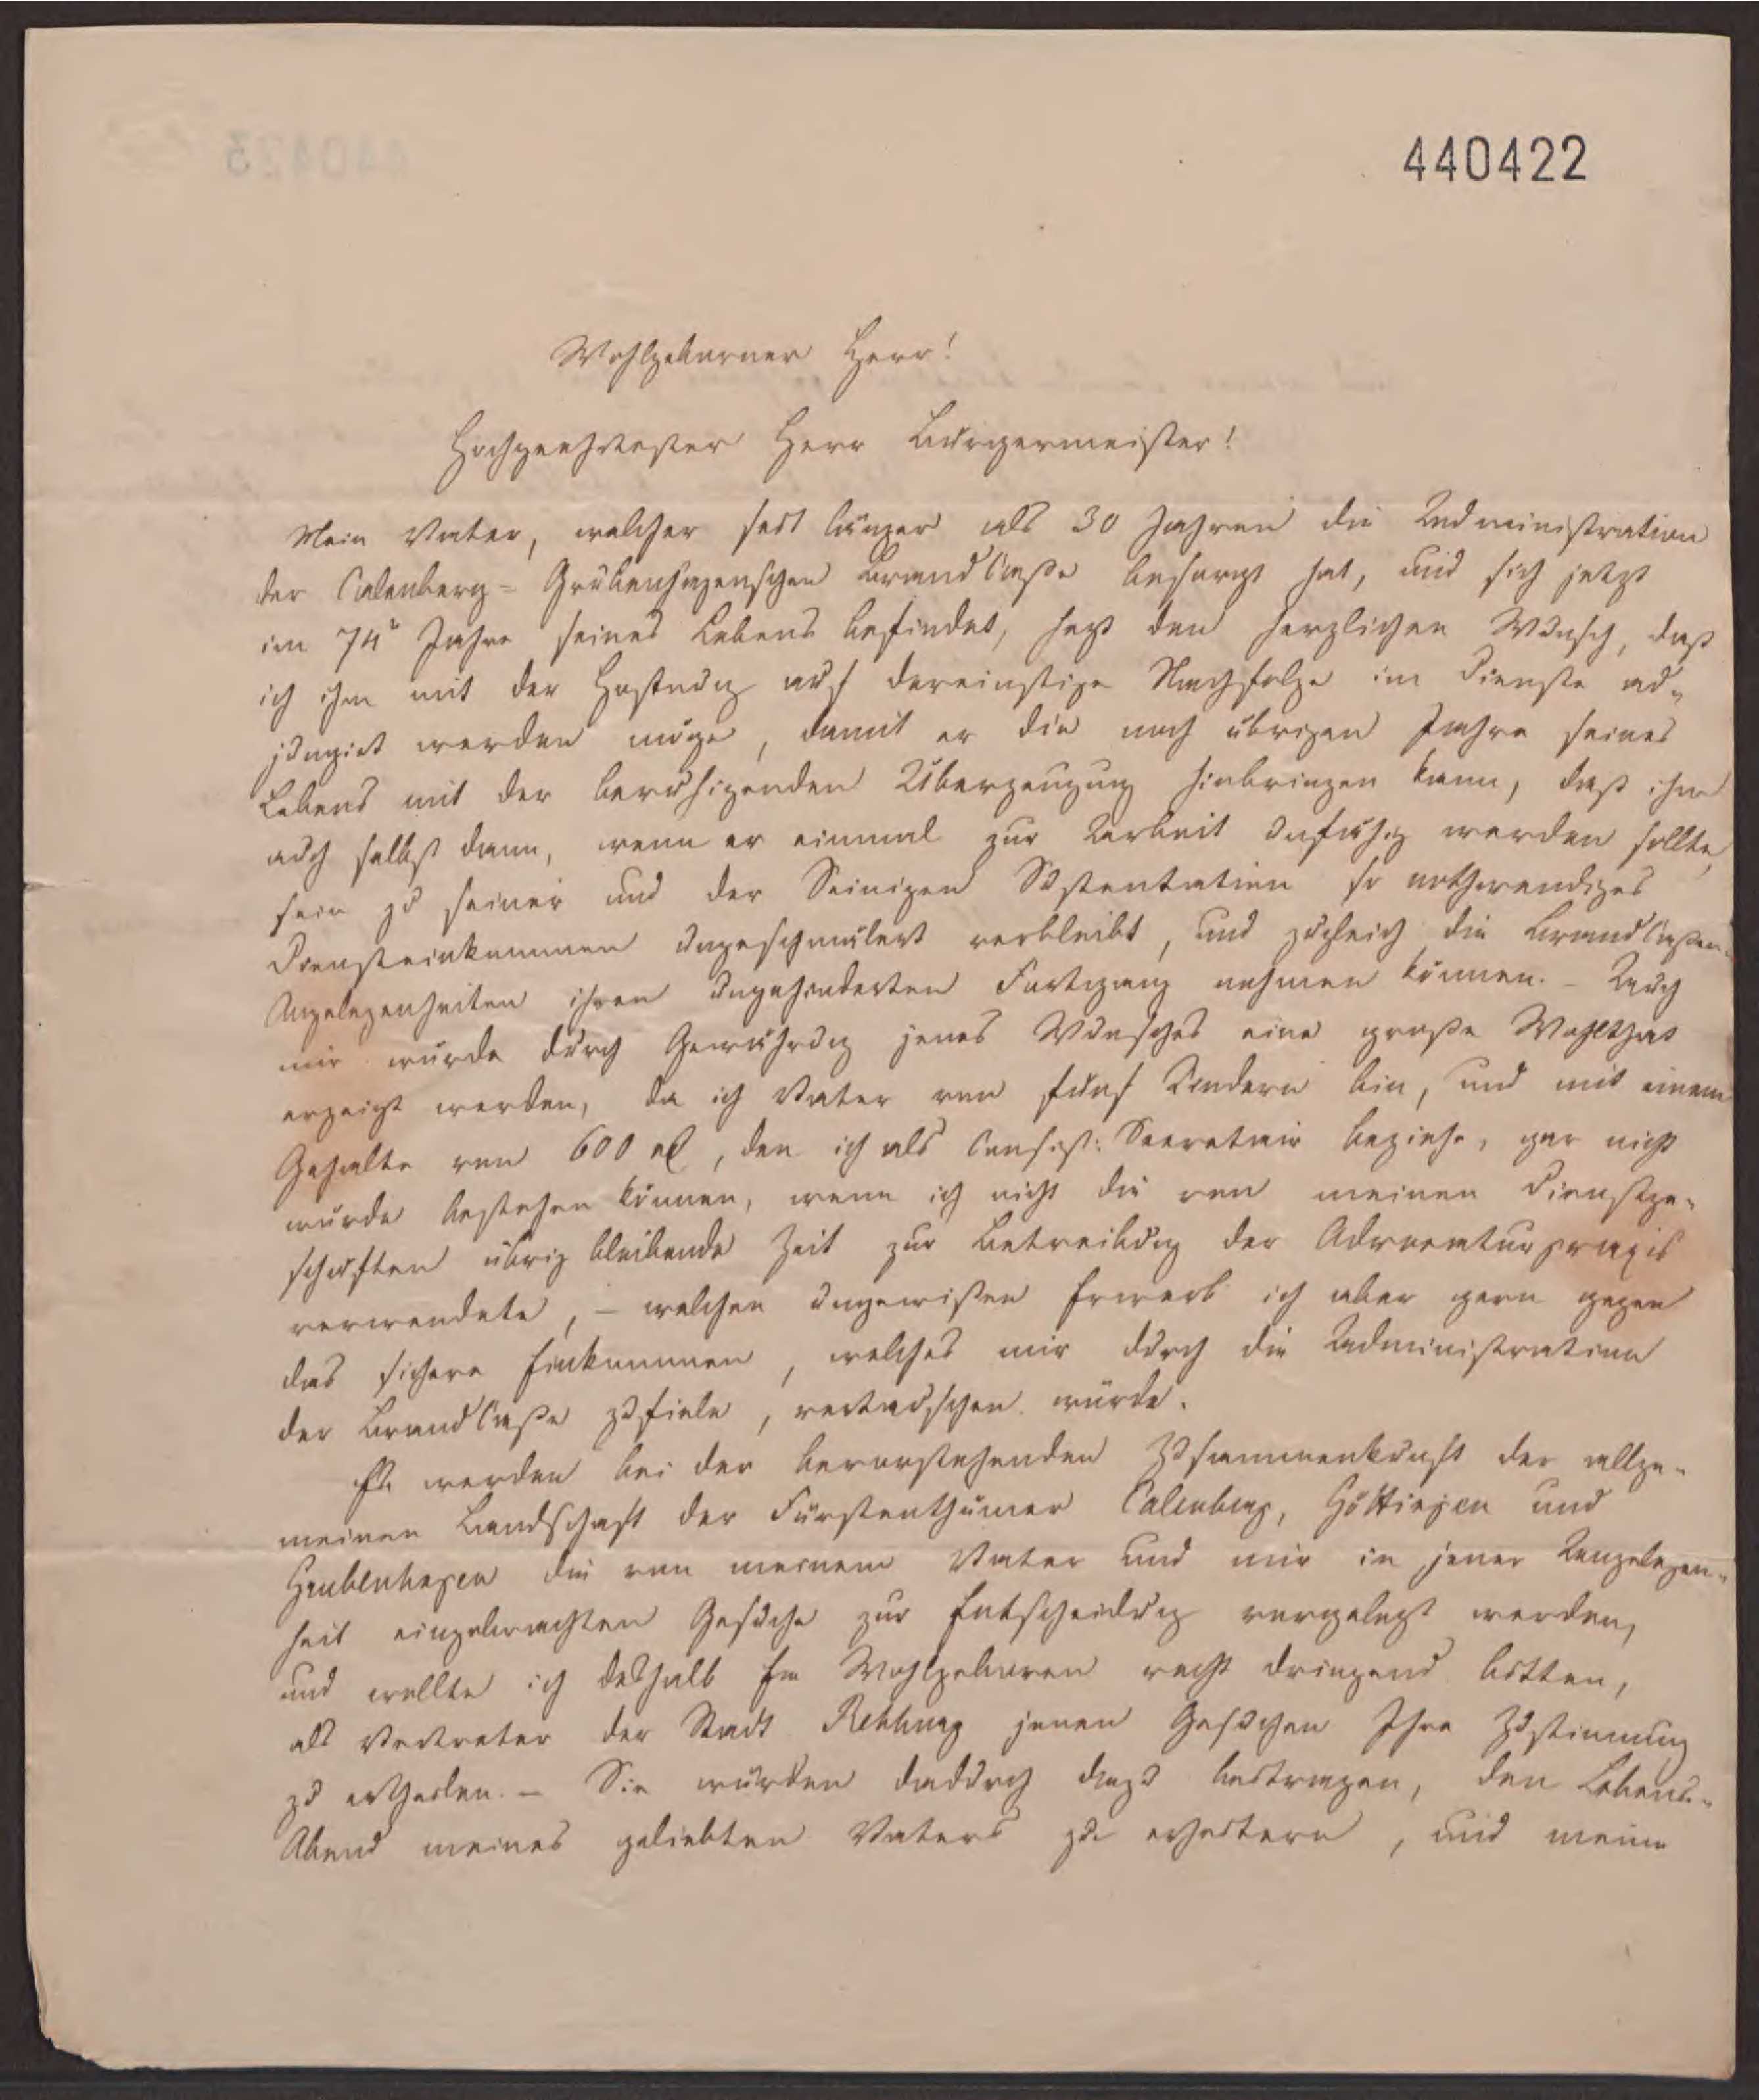 440422
Wohlgeborner Herr!
Hochgeehrtester Herr Bürgermeister!
Mein Vater, welcher seit länger als 30 Jahren die Administration
der Calenberg-Grubenhagenschen BrandCasse besorgt hat, und sich jetzt
im 74n Jahre seines Lebens befindet, hegt den herzlichen Wunsch, daß
ich ihm mit der Hoffnung auf dereinstige Nachfolge im Dienste ad-
jungirt werden möge, damit er die noch übrigen Jahre seines
Lebens mit der beruhigenden Überzeugung hinbringen kann, daß ihm
auch selbst dann, wenn er einmal zur Arbeit unfähig werden sollte,
sein zu seiner und der Seinigen Sustentation so nothwendiges
Diensteinkommen ungeschmälert verbleibt, und zugleich die BrandCassen-
Angelegenheiten ihren ungehinderten Fortgang nehmen können. - Auch
mir würde durch Gewährung jenes Wunsches eine große Wohlthat
erzeigt werden, da ich Vater von fünf Kindern bin, und mit einem
Gehalte von 600 rl, den ich als Consist: Secretair beziehe, gar nicht
würde bestehen können, wenn ich nicht die von meinen Dienstge-
schäften übrig bleibende Zeit zur Betreibung der Advocaturpraxis
verwendete, - welchen ungewissen Erwerb ich aber gern gegen
das sichere Einkommen, welches mir durch die Administration
der BrandCasse zufiele, vertauschen würde.
Es werden bei der bevorstehenden Zusammenkunft der allge-
meinen Landschaft der Fürstenthümer Calenberg, Göttingen und
Grubenhagen die von meinem Vater und mir in jener Angelegen-
heit eingebrachten Gesuche zur Entscheidung vorgelegt werden,
und wollte ich deshalb Ew Wohlgeboren recht dringend bitten,
als Vertreter der Stadt Rehburg jenen Gesuchen Ihre Zustimmung
zu ertheilen. - Sie würden dadurch dazu beitragen, den Lebens-
Abend meines geliebten Vaters zu erheitern, und meine